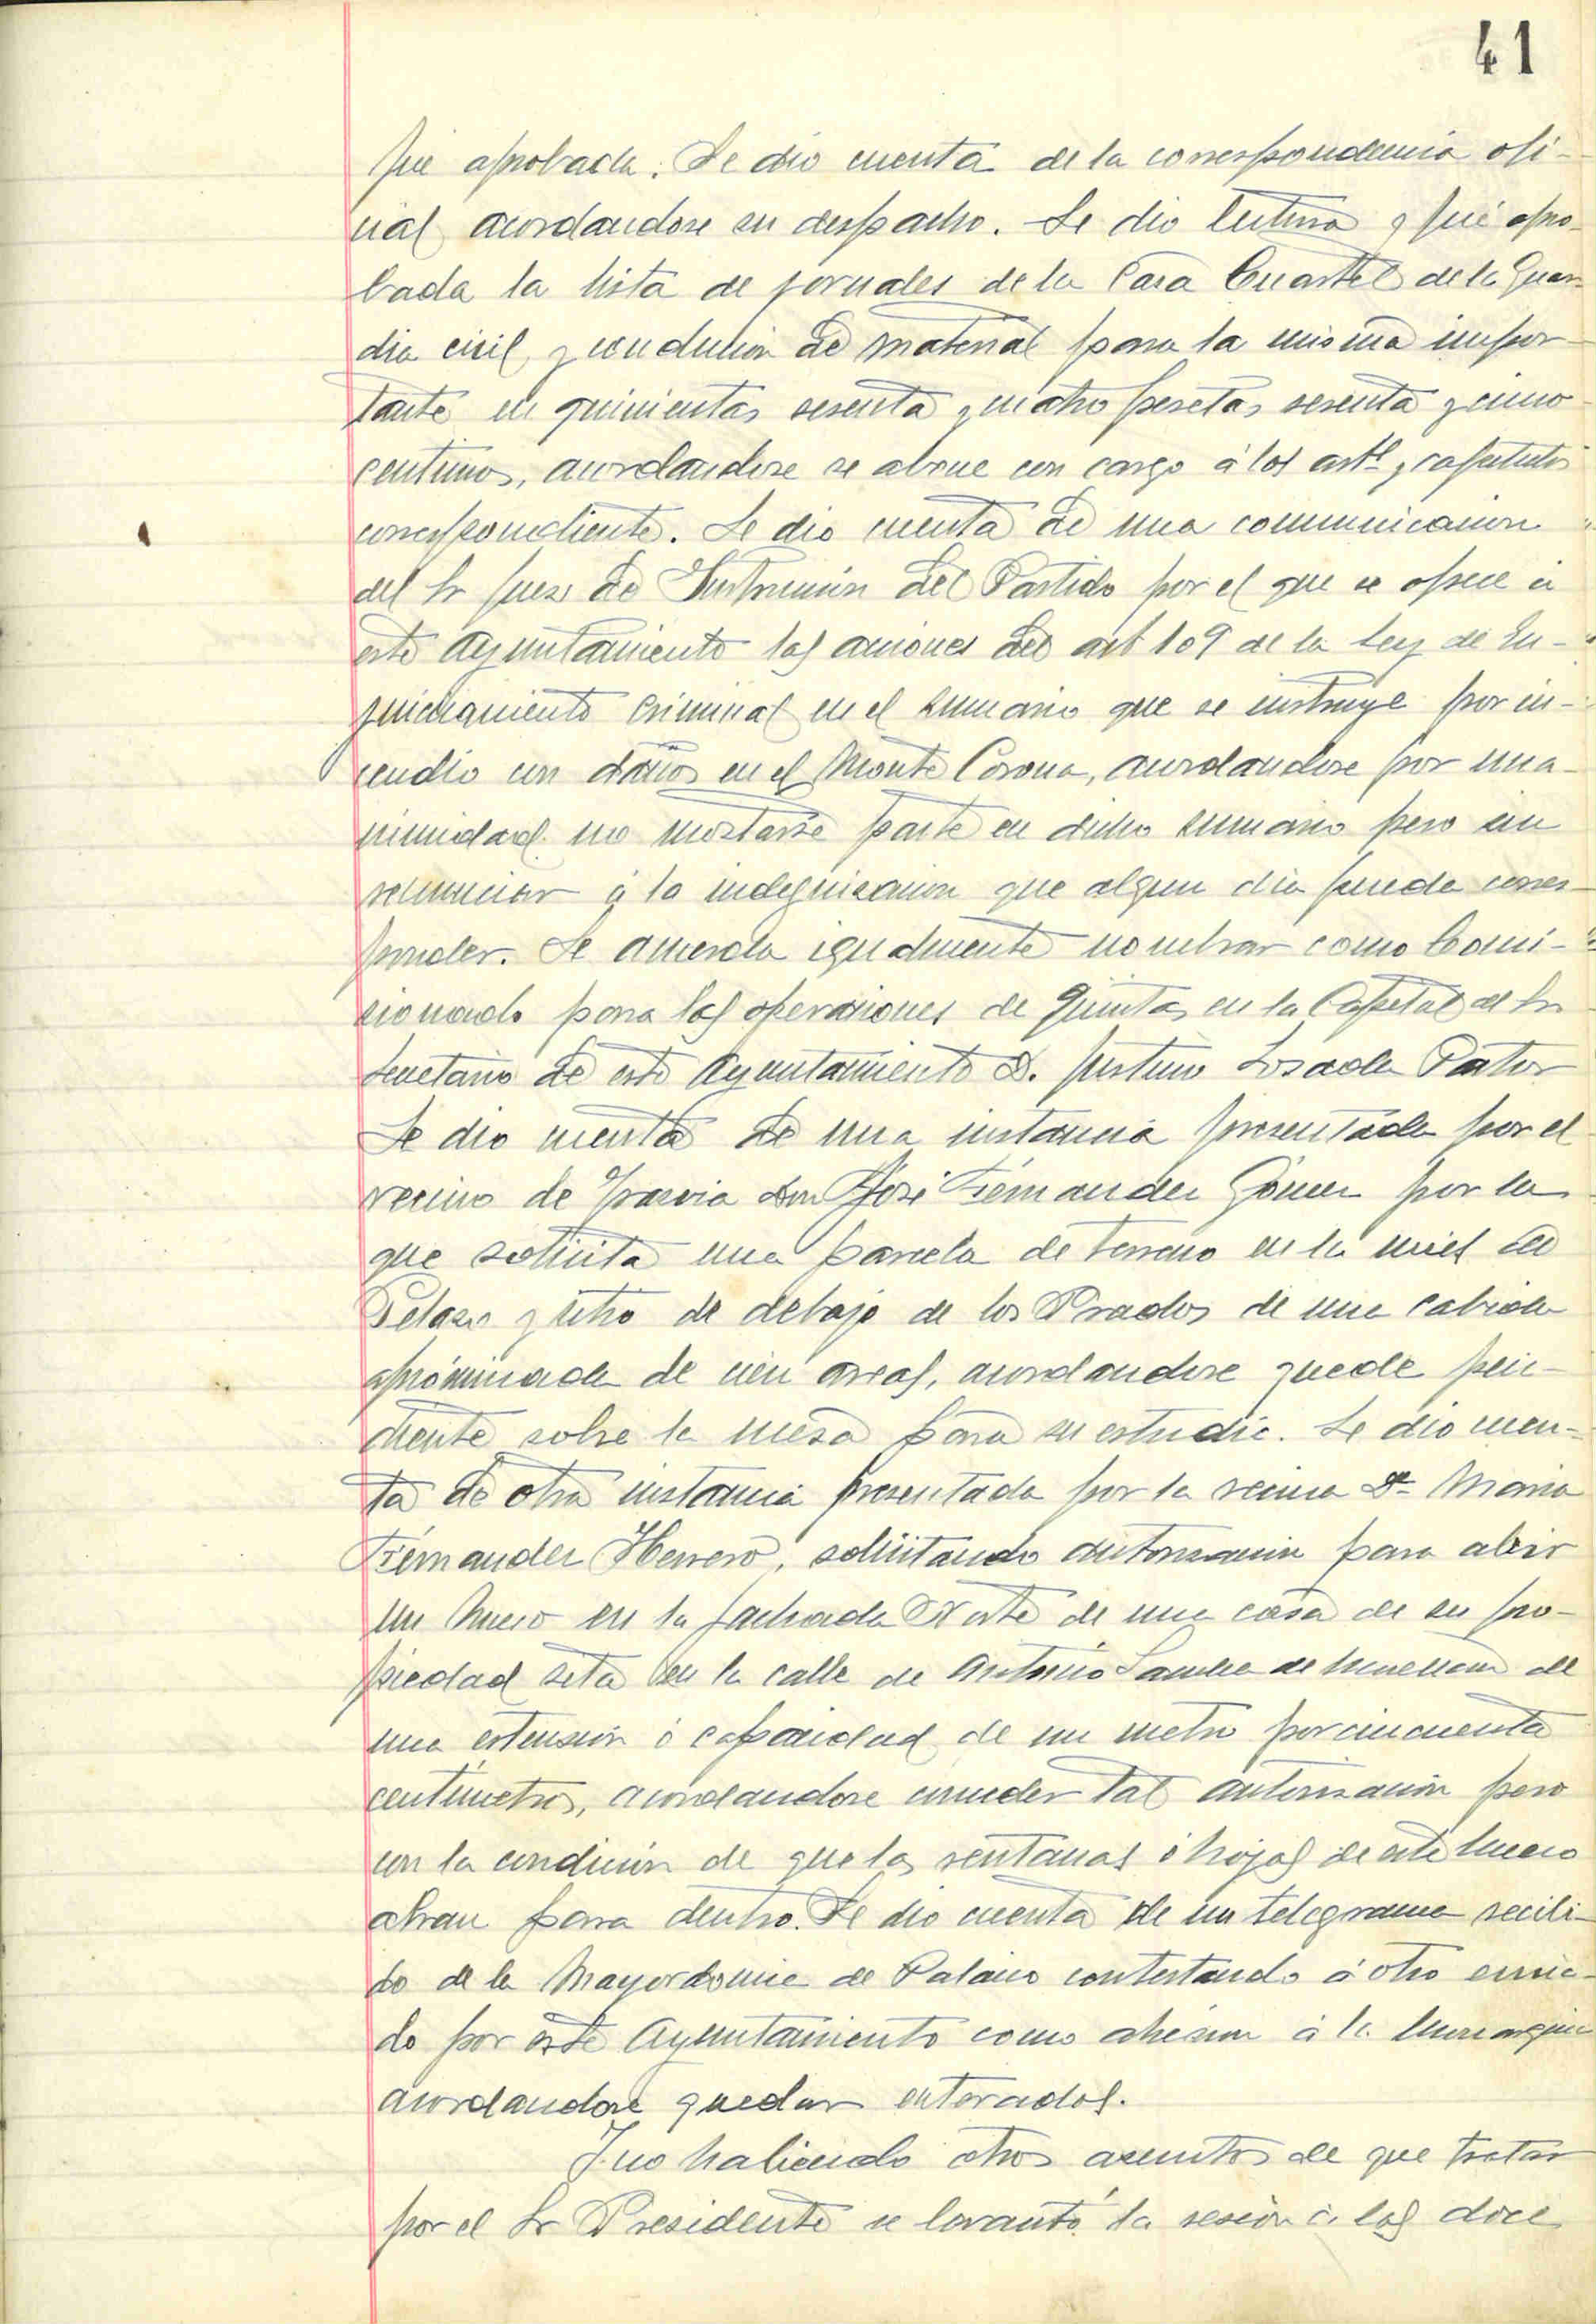 41
fué aprobada. Se dio cuenta de la correspondencia ofi-
cial acordandose su despacho. Se dio lectura y fué apro-
bada la lista de jornales de la Casa Cuartel de la Guar-
dia civil y conducion de material para la misma impor-
tante en quinientas sesenta y cuatro pesetas sesenta y cinco
centimos, acordandose se abone con cargo á los artls y capitulos
correspondiente. Se dio cuenta de una comunicacion
del Sr Juez de Instrucción del Partido por el que se ofrece á
este Ayuntamiento las acciones del art 109 de la Ley de En-
juiciamiento Criminal en el sumario que se instruye por in-
cendio con daños en el Monte Corona, acordandose por una-
nimidad no mostarse parte en dicho sumario pero sin
renunciar á la indegnizacion que algun dia pueda corres-
ponder. Se acuerda igualmente nombrar como Comi-
sionado para las operaciones de Quintas en la Capital al Sr
Secretario de este Ayuntamiento D. Justino Losada Pastor
Se dio cuenta de una instancia presentada por el
vecino de Don José Fernandez Gómez por la
que solicita una parcela de terreno en la mies del
y sitio de debajo de los Prados de una cabida
apróximada de cien areas, acordandose quede pen-
diente sobre la mesa para su estudio. Se dio cuen-
ta de otra instancia presentada por la vecina Dª Maria
Fernandez Herrero, solicitando autorizacion para abrir
un hueco en la fachada Norte de una casa de su pro-
piedad sita en la calle de Antonio Sanchez de de
una estension ó capacidad de un metro por cincuenta
centimetros, acordandose conceder tal autorización pero
con la condición de que las ventanas ú hojas de este hueco
abran para dentro. Se dio cuenta de un telegrama recibi-
do de la Mayordomia de Palacio contestando á otro envia-
do por este Ayuntamiento como ahesion á la Monarquia
acordandose quedar enterados.
Y no habiendo otros asuntos de que tratar
por el Sr Presidente se levantó la sesión á las doce